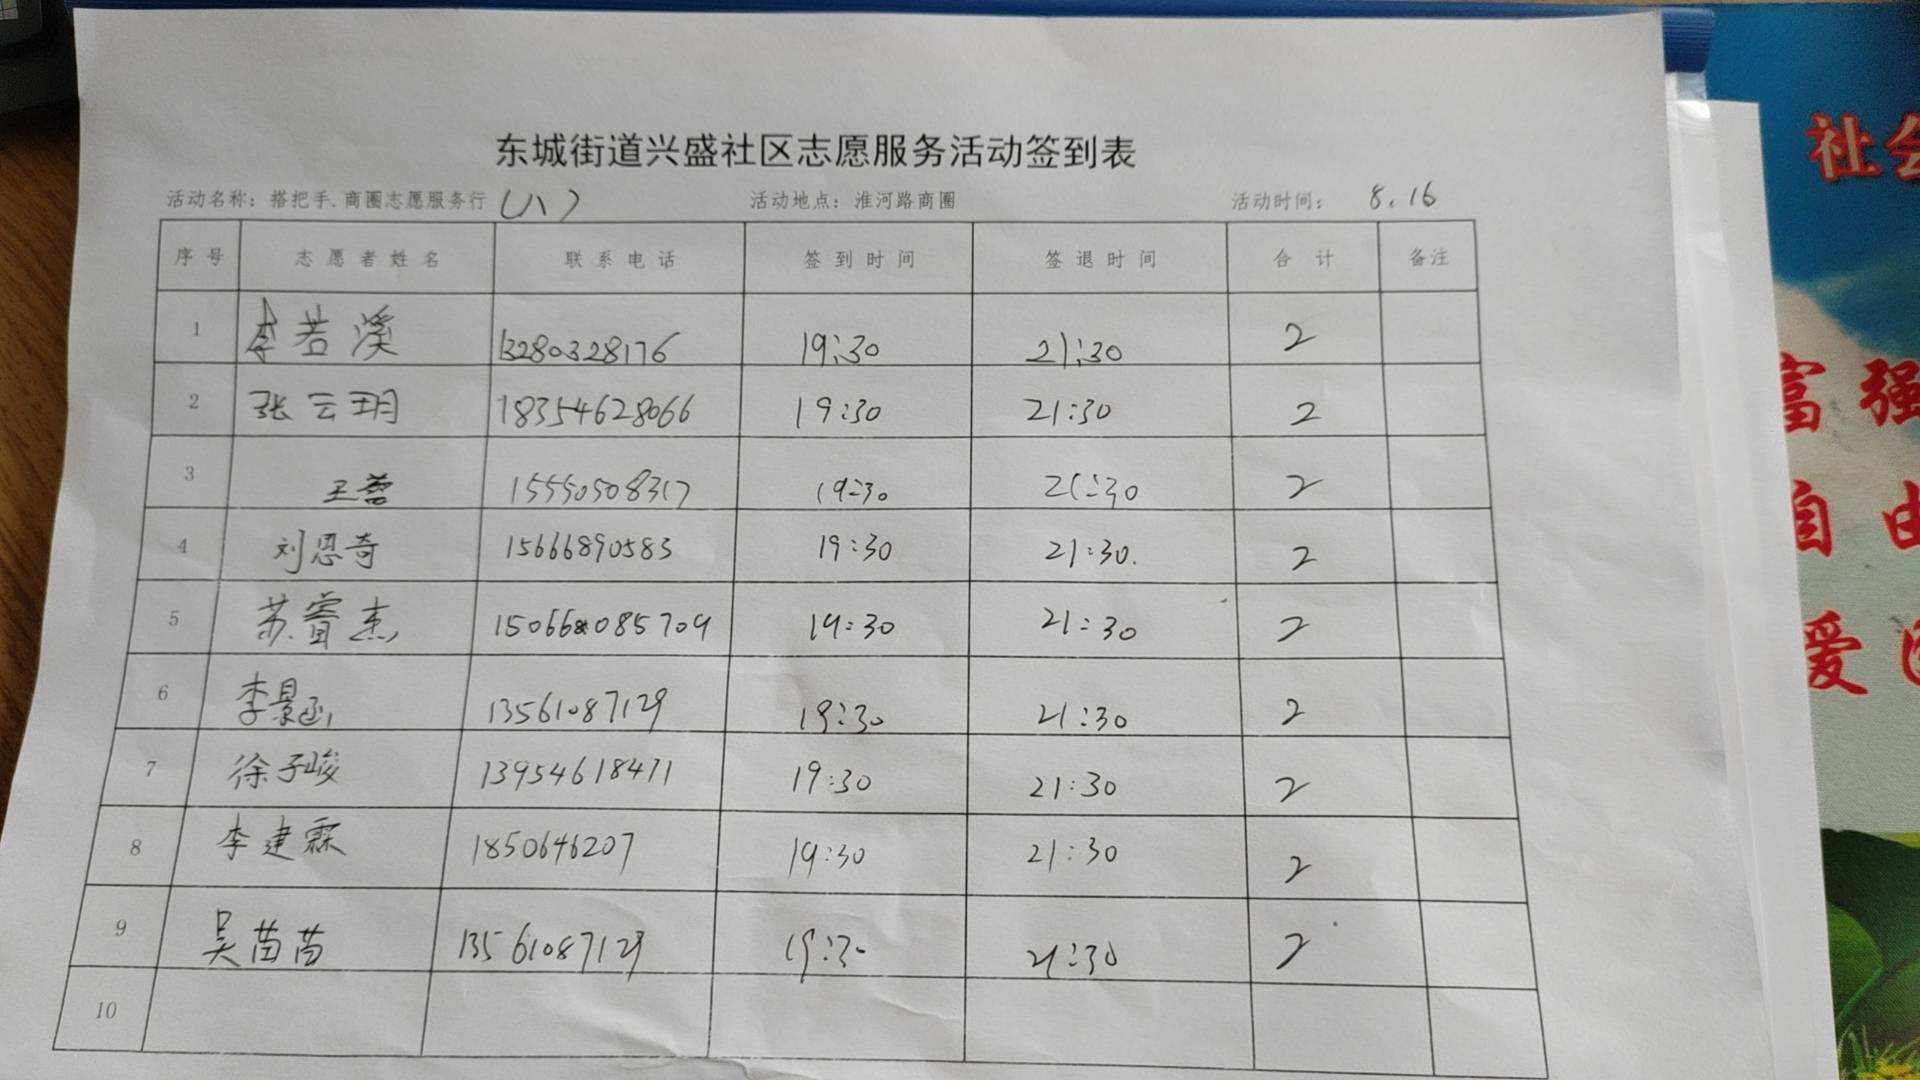 东城街道兴盛社区志愿服务活动签到表
活动名称：搭把手、商圈志愿服务行(八) 活动地点：淮河路商圈 活动时间：8.16
序号 志愿者姓名 联系电话 签到时间 签退时间 合计 备注
1 李若溪 13280328176 19:30 21:30 2
2 张云玥 18354628066 19:30 21:30 2
3 王蕾 15550508317 19:30 21:30 2
4 刘恩奇 15666890583 19:30 21:30. 2
5 苏睿杰 19:30 21:30 2
6 李景函 13561087129 19:30 21:30 2
7 徐子峻 13954618471 19:30 21:30 2
8 李建霖 1850646207 19:30 21:30 2
9 吴苗苗 13561087129 19:30 21:30 2
10
社会
富强
自由
爱